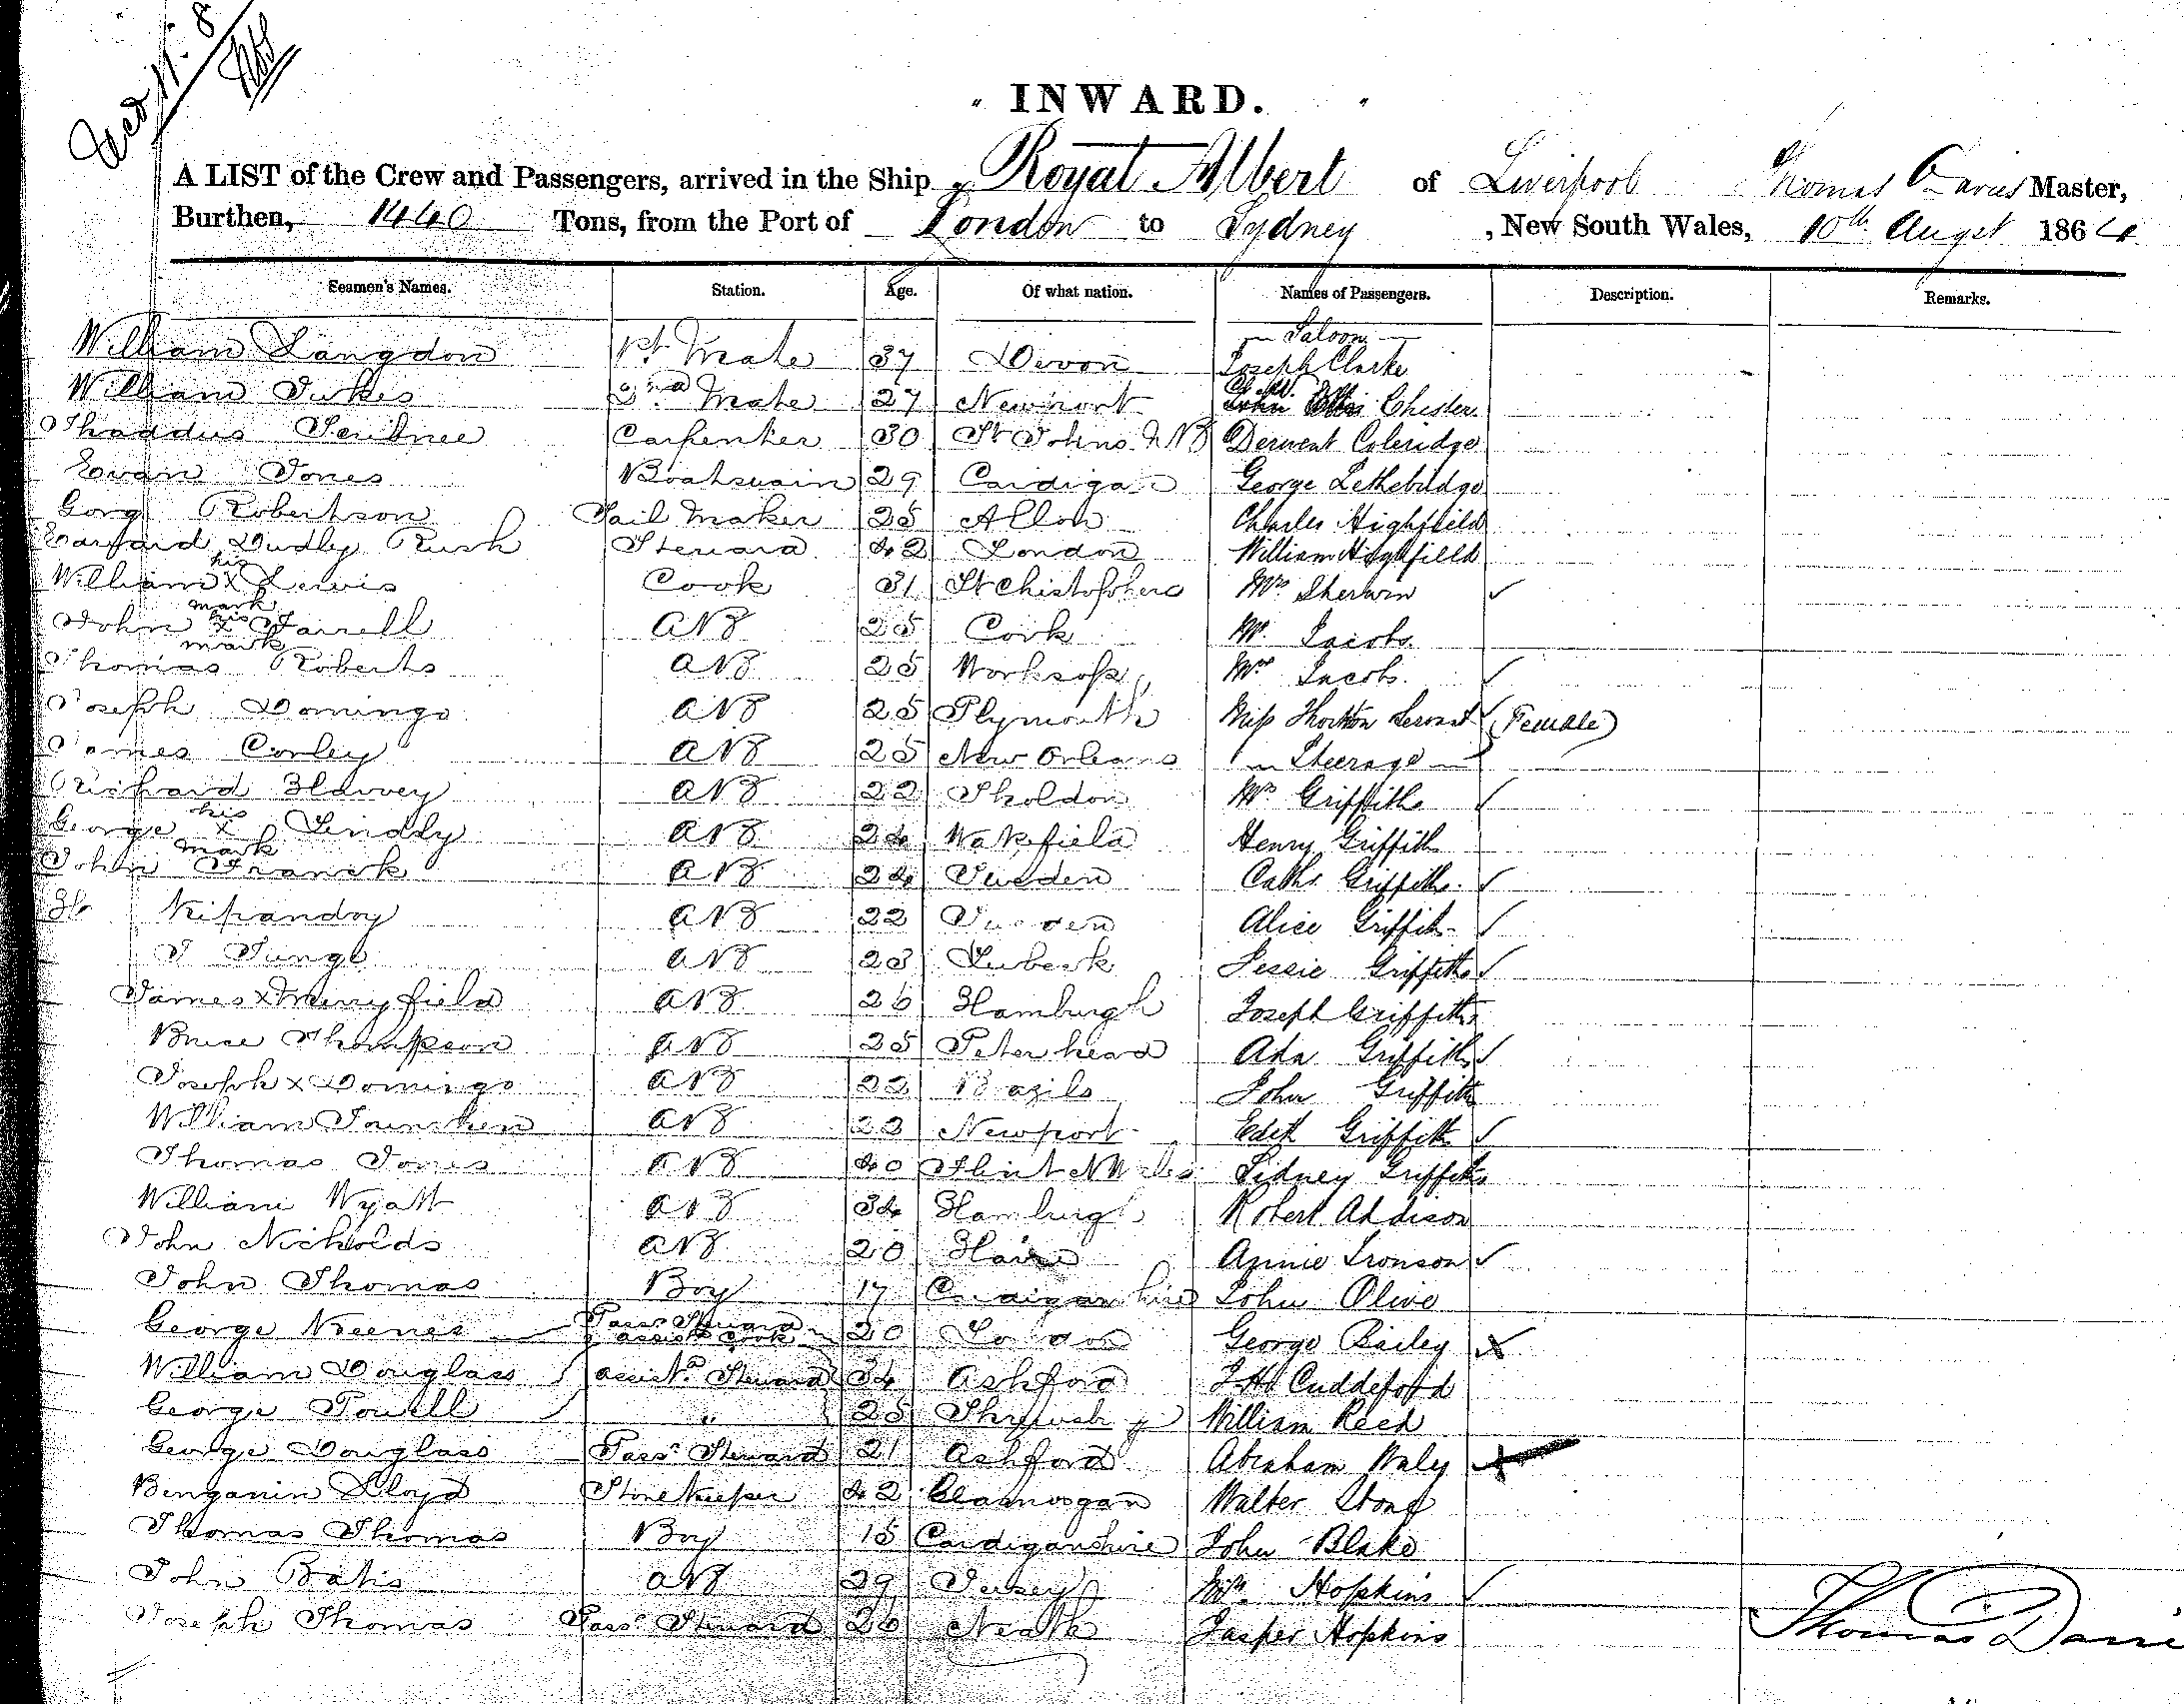 INWARD.
A LIST of the Crew and Passengers, arrived in the Ship Royal Albert of Liverpool Thomas Davies Master,
Burthen, 1440 Tons, from the Port of London to Sydney , New South Wales, 10th Augst 1864
Seamen's Names. Station. Age. Of what nation. Names of Passengers. Description. Remarks.
Saloon
William Langdon 1st Mate 37 Devon Joseph Clarke
William Jukes 2nd Mate 27 Newport Chester
Thaddus Scribner Carpenter 30 St Johns NB Derwent Coleridge
Evan Jones Boatswain 29 Cardigan George Lethebridge
Gorg Robertson Sail Maker 25 Alloa Charles Highfield
Dudly Rush Steward 42 London William Highfield
William his x mark Lewis Cook 31 St Chistophers Mrs Sherwin ✓
John his x mark Farrell AB 25 Cork Mr Jacobs.
Thomas Roberts AB 25 Worksop Mrs Jacobs. ✓
Joseph Domingo AB 25 Plymouth Miss Thornton Servant ✓ (Female)
James Corley AB 25 New Orleans Steerage
Richard Harvey AB 22 Sholdon Mrs Griffiths ✓
George his x mark Liddy AB 24 Wakefield Henry Griffith
John Franck AB 24 Sweden Cathe Griffiths ✓
AB 22 Sweden Alice Griffith ✓
J Junge AB 23 Lubeck Jessie Griffiths ✓
James x Merryfield AB 26 Hamburgh Joseph Griffiths
Bruce Thompson AB 25 Peterhead Ada Griffiths ✓
Joseph x Domingo AB 22 Brazils John Griffiths
William AB 23 Newport Edith Griffith ✓
Thomas Jones AB 40 Flint N Wales Sidney Griffiths
William Wyatt AB 34 Hamburgh Robert Addison
John Nicholds AB 20 Havre Annie Ironson ✓
John Thomas Boy 17 Cardiganshire John Olive
George Keenes Passr Steward & assist Cook 20 London George Bailey X
William Douglass assist Steward 34 Ashford J.H. Cuddeford
George Powell " 25 Shrewsbury William Reed
George Douglass Passr Steward 21 Ashford Abraham Waley X
Benganin Lloyd Storekeeper 42 Glamorgan Walter Stone
Thomas Thomas Boy 15 Cardiganshire John Blake
John Batis AB 29 Jersey Mrs Hopkins ✓
Joseph Thomas Passr Steward 26 Neath Jasper Hopkins
Thomas Davies